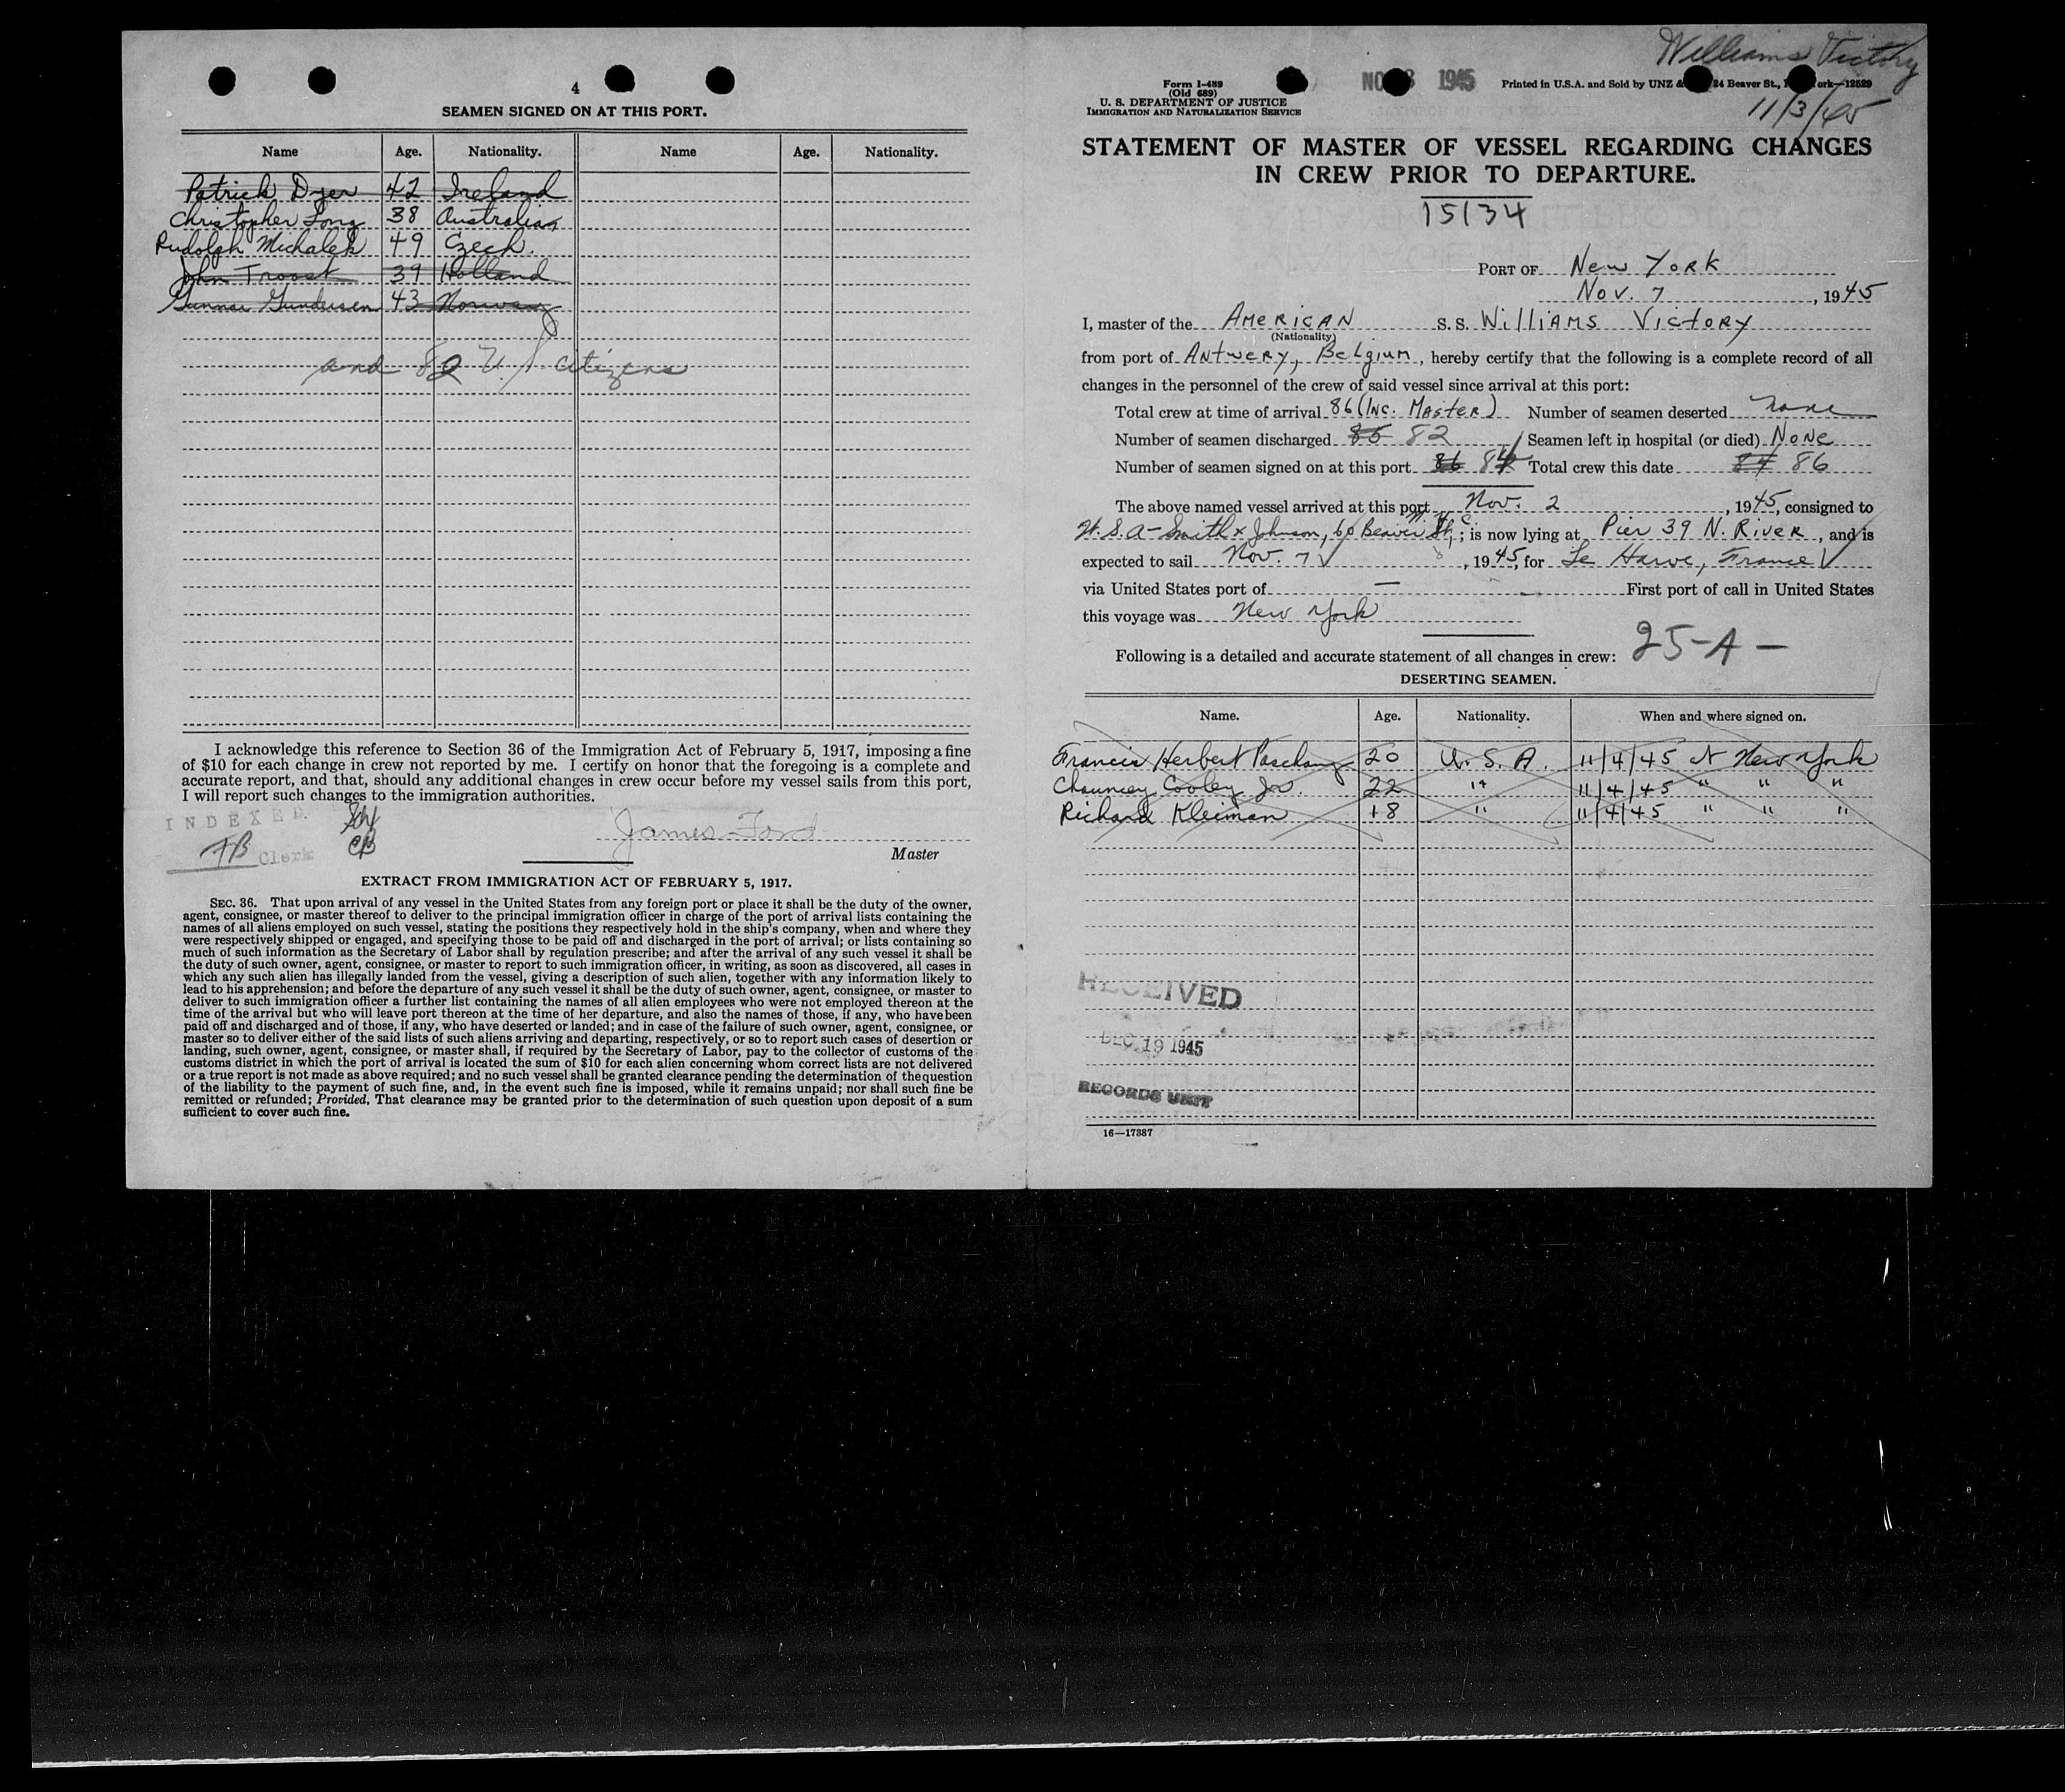 4
SEAMEN SIGNED ON AT THIS PORT.
Name Age. Nationality. Name Age. Nationality.
Patrick Dyer 42 Ireland
Christopher Long 38 Australian
Rudolph Michalek 49 Czech.
John Troost 39 Holland
Gunnar Gundersen 43 Norway
and 82 U.S. citizens
I acknowledge this reference to Section 36 of the Immigration Act of February 5, 1917, imposing a fine
of $10 for each change in crew not reported by me. I certify on honor that the foregoing is a complete and
accurate report, and that, should any additional changes in crew occur before my vessel sails from this port,
I will report such changes to the immigration authorities.
INDEXED
FB Clerk
CB
James Ford
Master
EXTRACT FROM IMMIGRATION ACT OF FEBRUARY 5, 1917.
SEC. 36. That upon arrival of any vessel in the United States from any foreign port or place it shall be the duty of the owner,
agent, consignee, or master thereof to deliver to the principal immigration officer in charge of the port of arrival lists containing the
names of all aliens employed on such vessel, stating the positions they respectively hold in the ship's company, when and where they
were respectively shipped or engaged, and specifying those to be paid off and discharged in the port of arrival; or lists containing so
much of such information as the Secretary of Labor shall by regulation prescribe; and after the arrival of any such vessel it shall be
the duty of such owner, agent, consignee, or master to report to such immigration officer, in writing, as soon as discovered, all cases in
which any such alien has illegally landed from the vessel, giving a description of such alien, together with any information likely to
lead to his apprehension; and before the departure of any such vessel it shall be the duty of such owner, agent, consignee, or master to
deliver to such immigration officer a further list containing the names of all alien employees who were not employed thereon at the
time of the arrival but who will leave port thereon at the time of her departure, and also the names of those, if any, who have been
paid off and discharged and of those, if any, who have deserted or landed; and in case of the failure of such owner, agent, consignee, or
master so to deliver either of the said lists of such aliens arriving and departing, respectively, or so to report such cases of desertion or
landing, such owner, agent, consignee, or master shall, if required by the Secretary of Labor, pay to the collector of customs of the
customs district in which the port of arrival is located the sum of $10 for each alien concerning whom correct lists are not delivered
or a true report is not made as above required; and no such vessel shall be granted clearance pending the determination of the question
of the liability to the payment of such fine, and, in the event such fine is imposed, while it remains unpaid; nor shall such fine be
remitted or refunded; Provided, That clearance may be granted prior to the determination of such question upon deposit of a sum
sufficient to cover such fine.
Williams Victory
11/3/45
Form I-489
(Old 689)
U. S. DEPARTMENT OF JUSTICE
IMMIGRATION AND NATURALIZATION SERVICE
1945
Printed in U.S.A. and Sold by UNZ & 24 Beaver St., ork—12529
STATEMENT OF MASTER OF VESSEL REGARDING CHANGES
IN CREW PRIOR TO DEPARTURE.
15134
PORT OF New York
Nov. 7, 1945
I, master of the American S. S. Williams Victory
(Nationality)
from port of Antwery, Belgium, hereby certify that the following is a complete record of all
changes in the personnel of the crew of said vessel since arrival at this port:
Total crew at time of arrival 86 (Inc. Master) Number of seamen deserted none
Number of seamen discharged 85 82 Seamen left in hospital (or died) None
Number of seamen signed on at this port 86 84 Total crew this date 87 86
The above named vessel arrived at this port Nov. 2, 1945, consigned to
W.S.A - Smith & Johnson, 60 Beaver St, ; is now lying at Pier 39 N. River, and is
expected to sail Nov. 7, 1945, for Le Harve, France
via United States port of — First port of call in United States
this voyage was New York
Following is a detailed and accurate statement of all changes in crew: 25-A-
DESERTING SEAMEN.
Name. Age. Nationality. When and where signed on.
Francis Herbert 20 U. S. A. 11/4/45 at New York
Chauncey Cooley Jr. 22 " 11/4/45 " " "
Richard Kleiman 18 " 11/4/45 " " "
RECEIVED
DEC 19 1945
RECORDS UNIT
16—17387